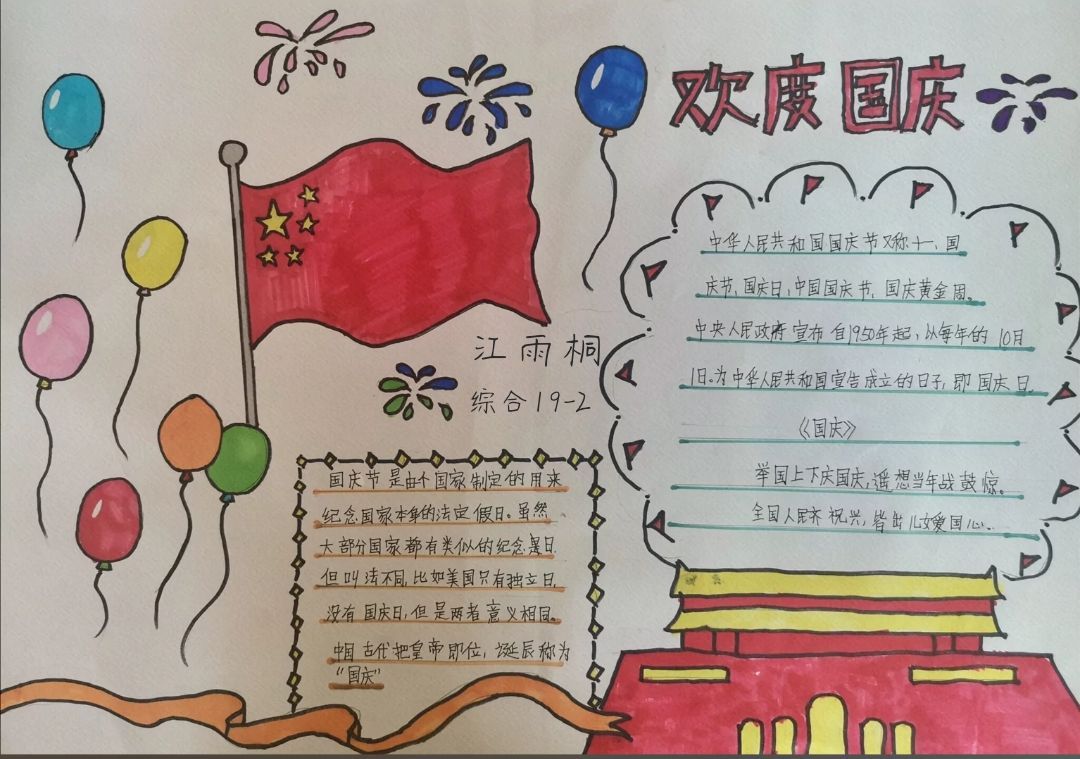 欢度国庆
中华人民共和国国庆节又称十一、国
庆节、国庆日、中国国庆节、国庆黄金周。
中央人民政府宣布自1950年起,以每年的10月
1日。为中华人民共和国宣告成立的日子,即国庆日
《国庆》
举国上下庆国庆,遥想当年战鼓惊。
全国人民齐祝兴,皆出儿女爱国心。
江雨桐
综合19-2
国庆节是由个国家制定的用来
纪念国家本身的法定假日。虽然
大部分国家都有类似的纪念是日
但叫法不同,比如美国只有独立日,
没有国庆日,但是两者意义相同。
中国古代把皇帝即位,诞辰称为
“国庆”